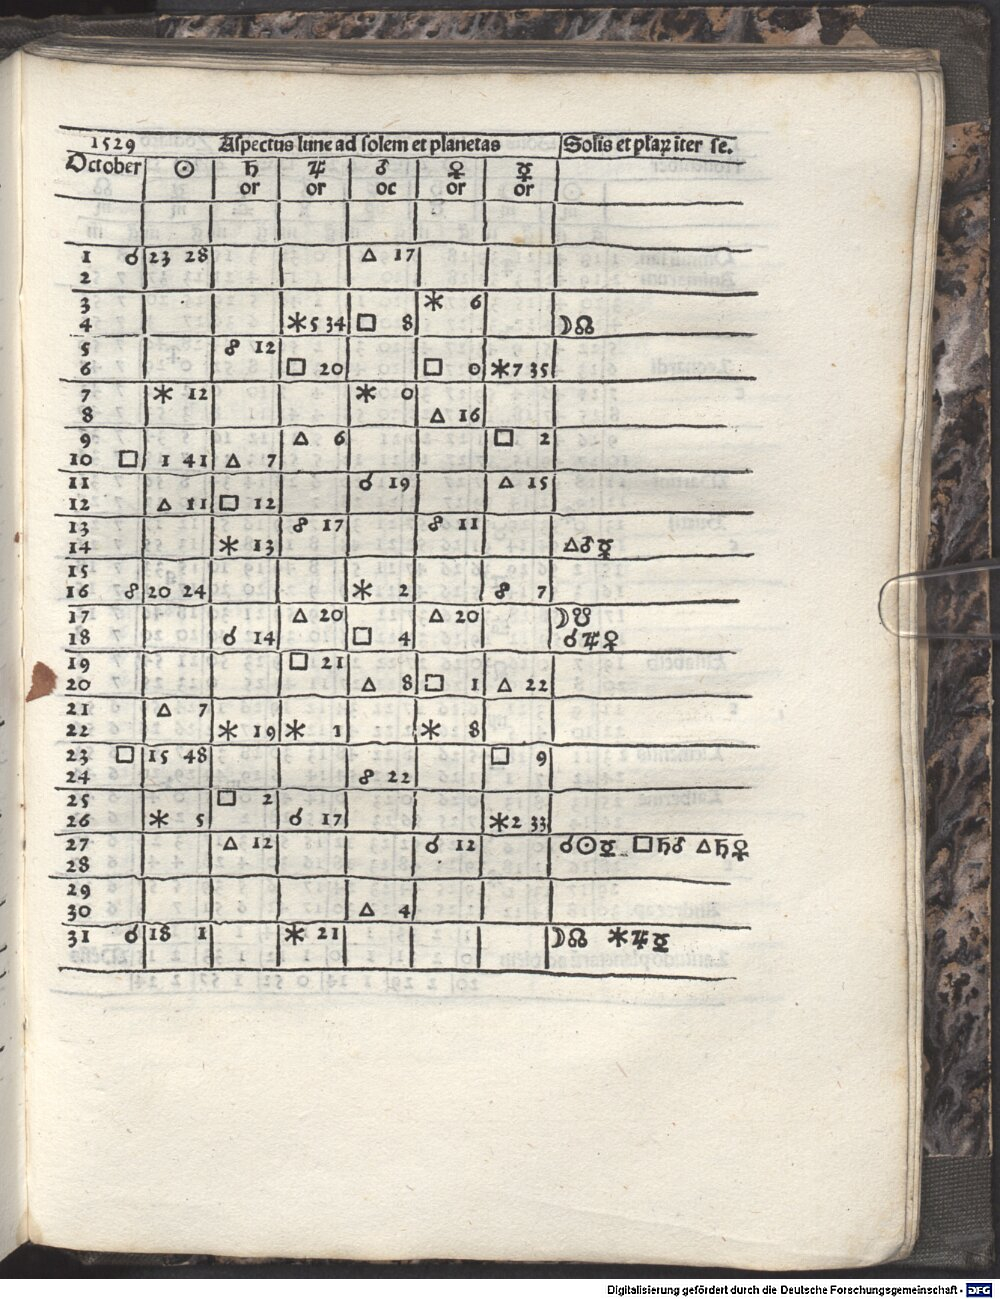 1529 Aspectus lune ad solem et planetas Solis et plaꝝ iter se.
October ☉ ♄ ♃ ♂ ♀ ☿
or or oc or or
1 ☌ 23 28 △ 17
2
3 ⚹ 6
4 ⚹ 5 34 □ 8 ☽☊
5 ☍ 12
6 □ 20 □ 0 ⚹ 7 35
7 ⚹ 12 ⚹ 0
8 △ 16
9 △ 6 □ 2
10 □ 1 41 △ 7
11 ☌ 19 △ 15
12 △ 11 □ 12
13 ☍ 17 ☍ 11
14 ⚹ 13 △♂☿
15
16 ☍ 20 24 ⚹ 2 ☍ 7
17 △ 20 △ 20 ☽☋
18 ☌ 14 □ 4 ☌♃♀
19 □ 21
20 △ 8 □ 1 △ 22
21 △ 7
22 ⚹ 19 ⚹ 1 ⚹ 8
23 □ 15 48 □ 9
24 ☍ 22
25 □ 2
26 ⚹ 5 ☌ 17 ⚹ 2 33
27 △ 12 ☌ 12 ☌☉☿ □♄♂ △♄♀
28
29
30 △ 4
31 ☌ 18 1 ⚹ 21 ☽☊ ⚹♃☿
Digitalisierung gefördert durch die Deutsche Forschungsgemeinschaft - DFG